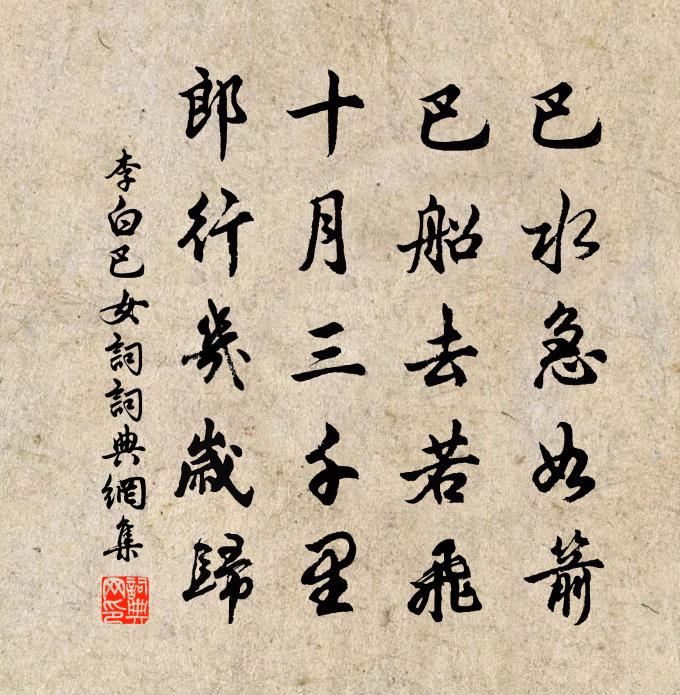 巴水急如箭
巴船去若飛
十月三千里
郎行幾歲歸
李白巴女詞詞典網集
詞典网印